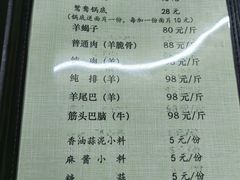 鸳鸯锅底 28元
(锅底送面片一份,每加一份面片10元)
羊蝎子 80元/斤
普通肉(羊脆骨) 88元/斤
纯肉(羊) 98元/斤
纯排(羊) 98元/斤
羊尾巴(羊) 98元/斤
筋头巴脑(牛) 98元/斤
香油蒜泥小料 5元/份
麻酱小料 5元/份
糖蒜 5元/份